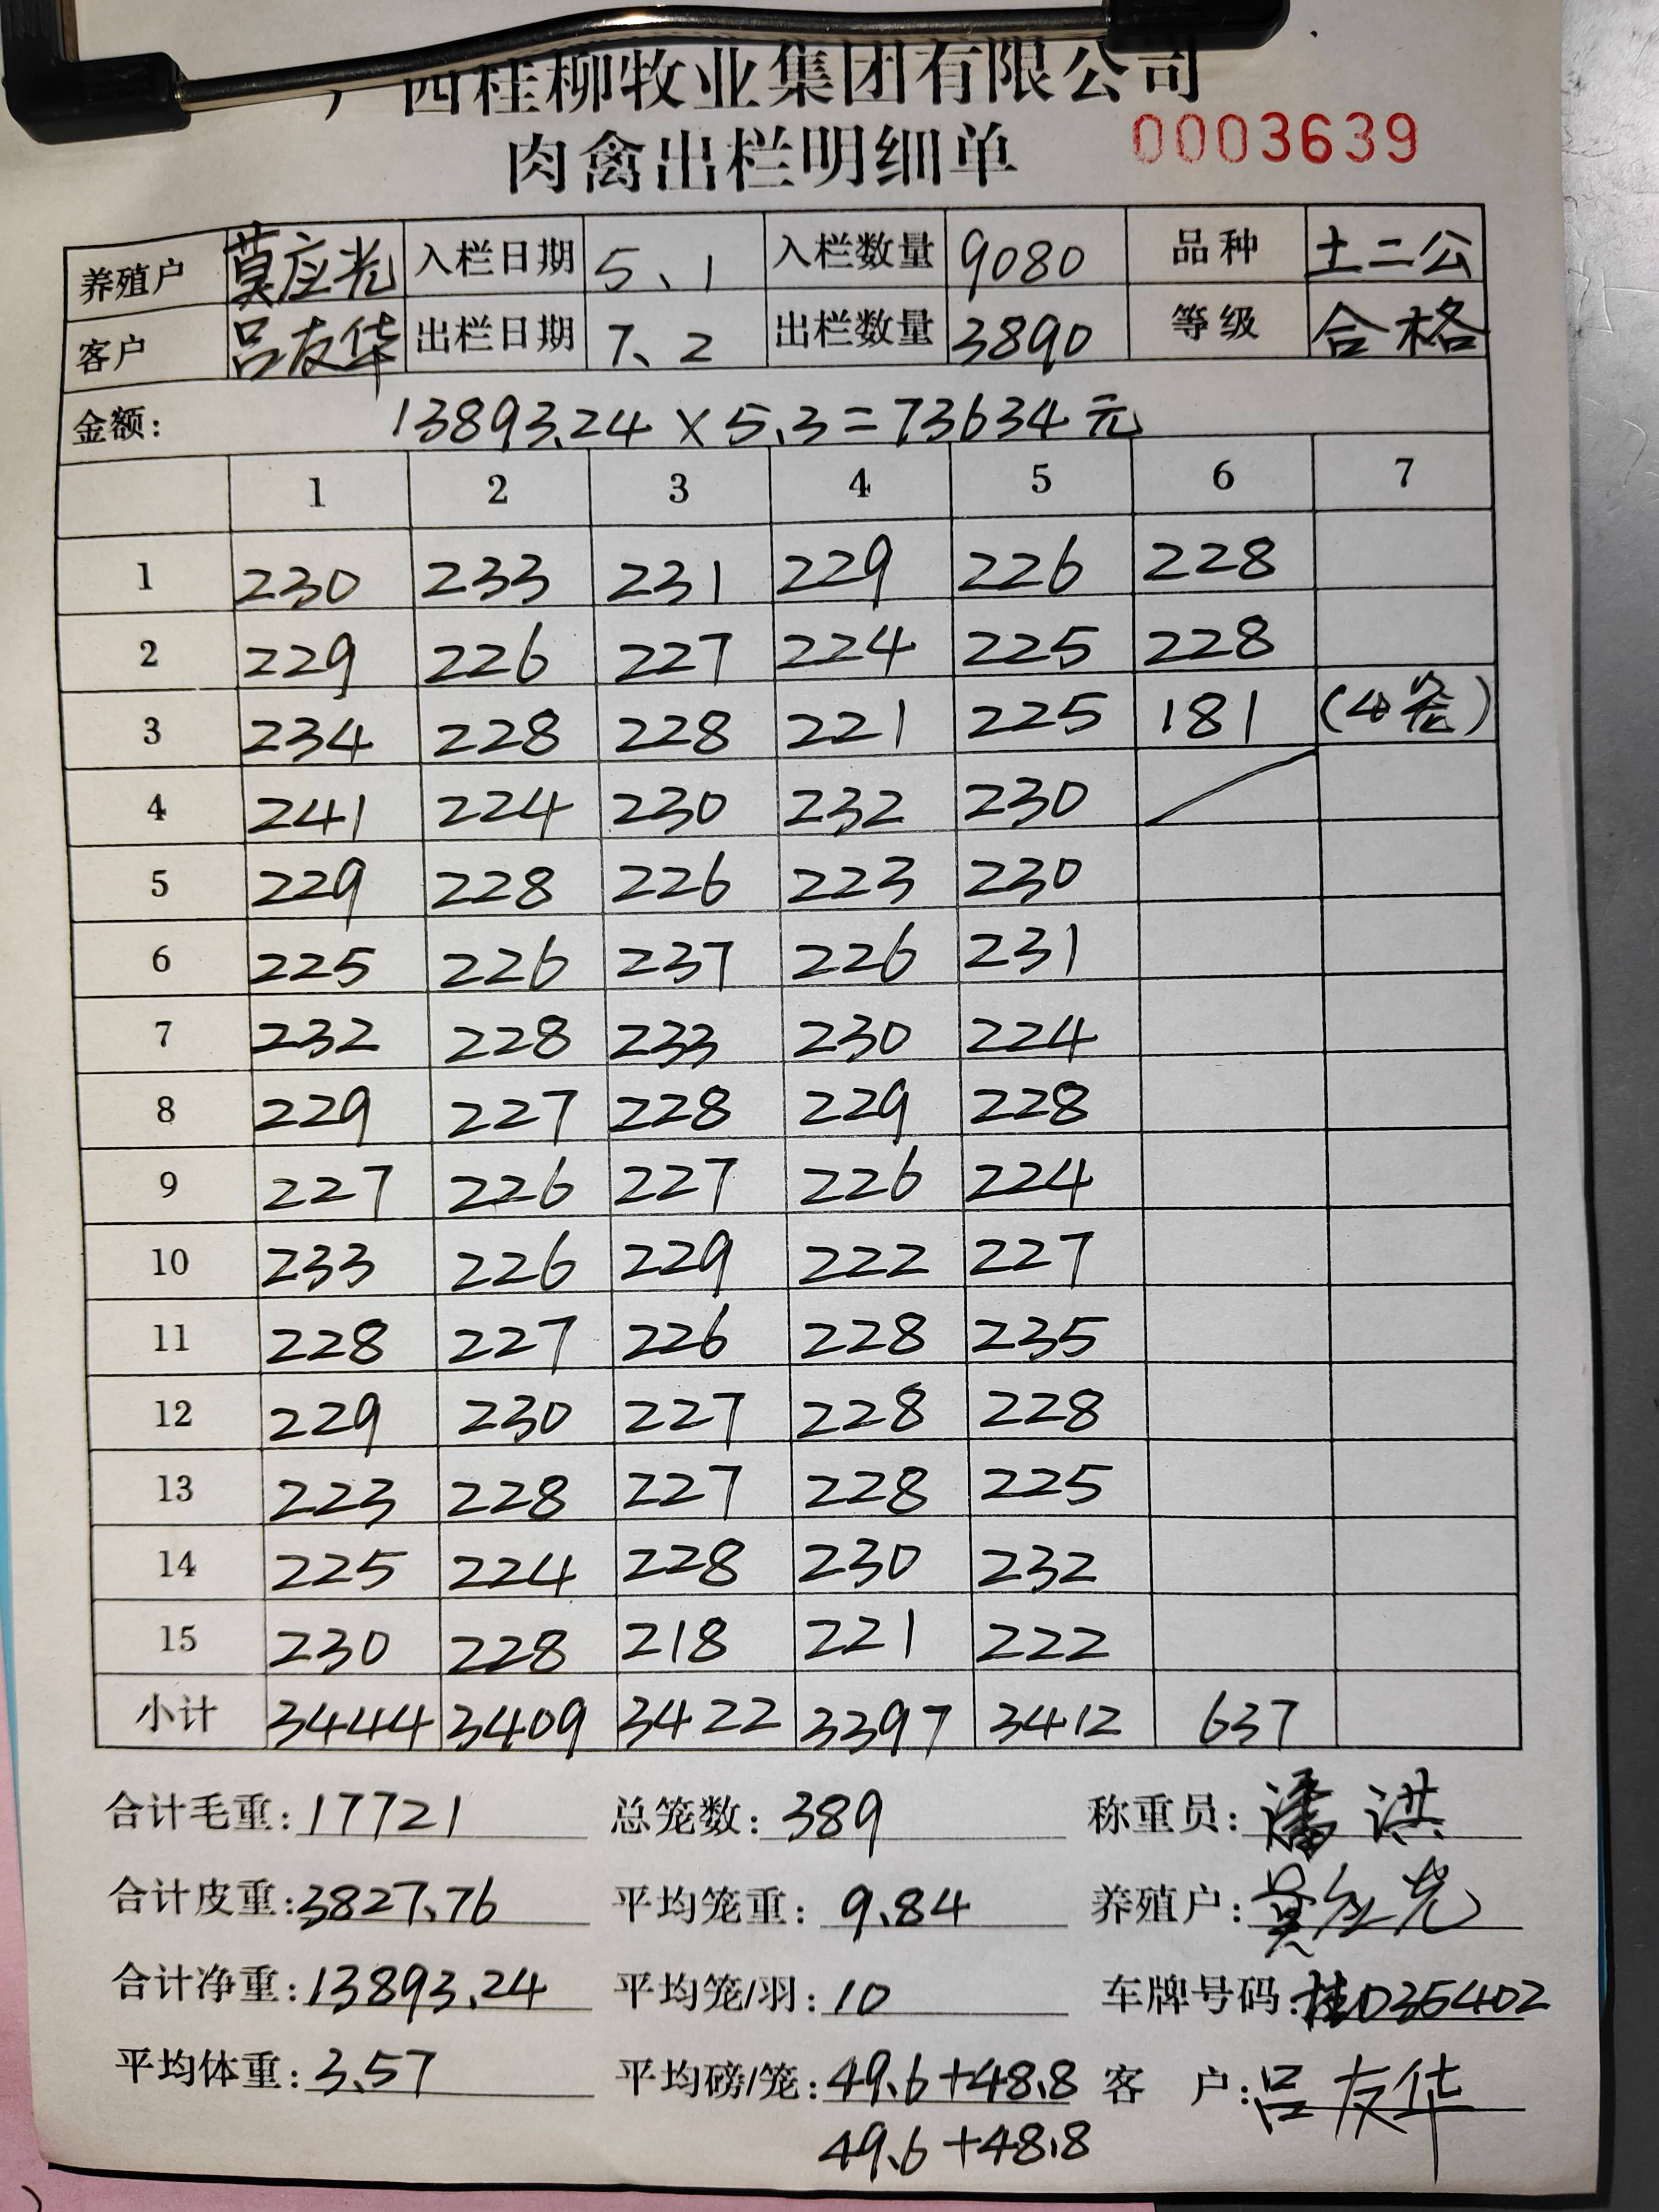 广西桂柳牧业集团有限公司
肉禽出栏明细单 0003639
养殖户 莫应光 入栏日期 5、1 入栏数量 9080 品种 土二公
客户 吕友华 出栏日期 7、2 出栏数量 3890 等级 合格
金额: 13893.24 × 5.3 = 73634元
1 2 3 4 5 6 7
1 230 233 231 229 226 228
2 229 226 227 224 225 228
3 234 228 228 221 225 181 (4笼)
4 241 224 230 232 230
5 229 228 226 223 230
6 225 226 237 226 231
7 232 228 233 230 224
8 229 227 228 229 228
9 227 226 227 226 224
10 233 226 229 222 227
11 228 227 226 228 235
12 229 230 227 228 228
13 223 228 227 228 225
14 225 224 228 230 232
15 230 228 218 221 222
小计 3444 3409 3422 3397 3412 637
合计毛重: 17721 总笼数: 389 称重员: 潘洪
合计皮重: 3827.76 平均笼重: 9.84 养殖户: 莫应光
合计净重: 13893.24 平均笼/羽: 10 车牌号码: 桂D35402
平均体重: 3.57 平均磅/笼: 49.6+48.8 客户: 吕友华
49.6+48.8